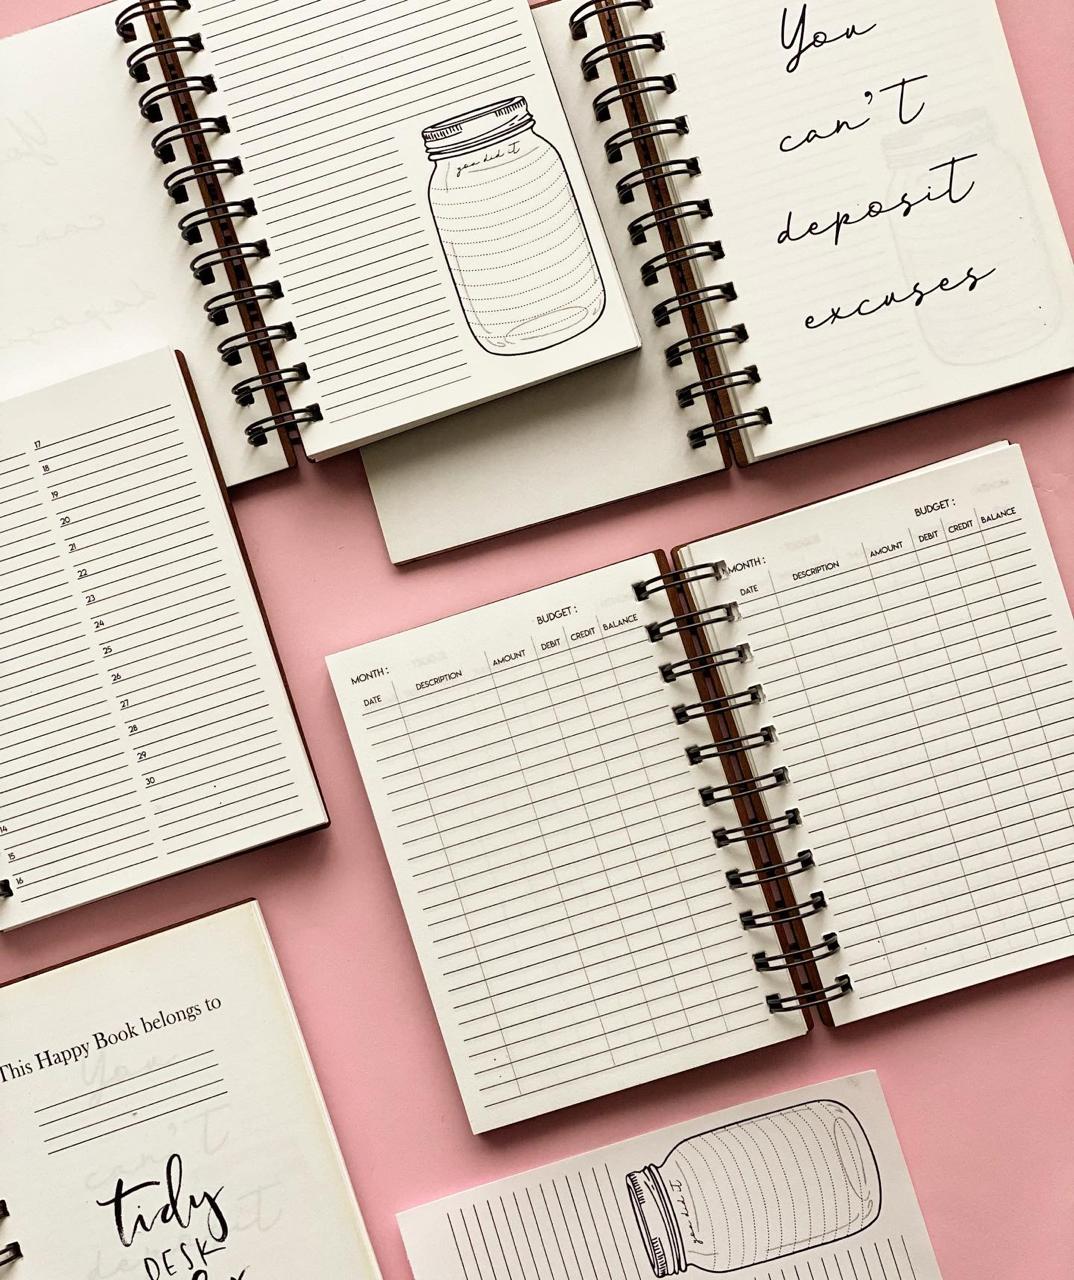 you did it
You
can't
deposit
excuses
17
18
19
20
21
22
23
24
25
26
27
28
29
30
14
15
16
MONTH :
BUDGET :
DATE DESCRIPTION AMOUNT DEBIT CREDIT BALANCE
MONTH :
BUDGET :
DATE DESCRIPTION AMOUNT DEBIT CREDIT BALANCE
This Happy Book belongs to
tidy
DESK
you did it